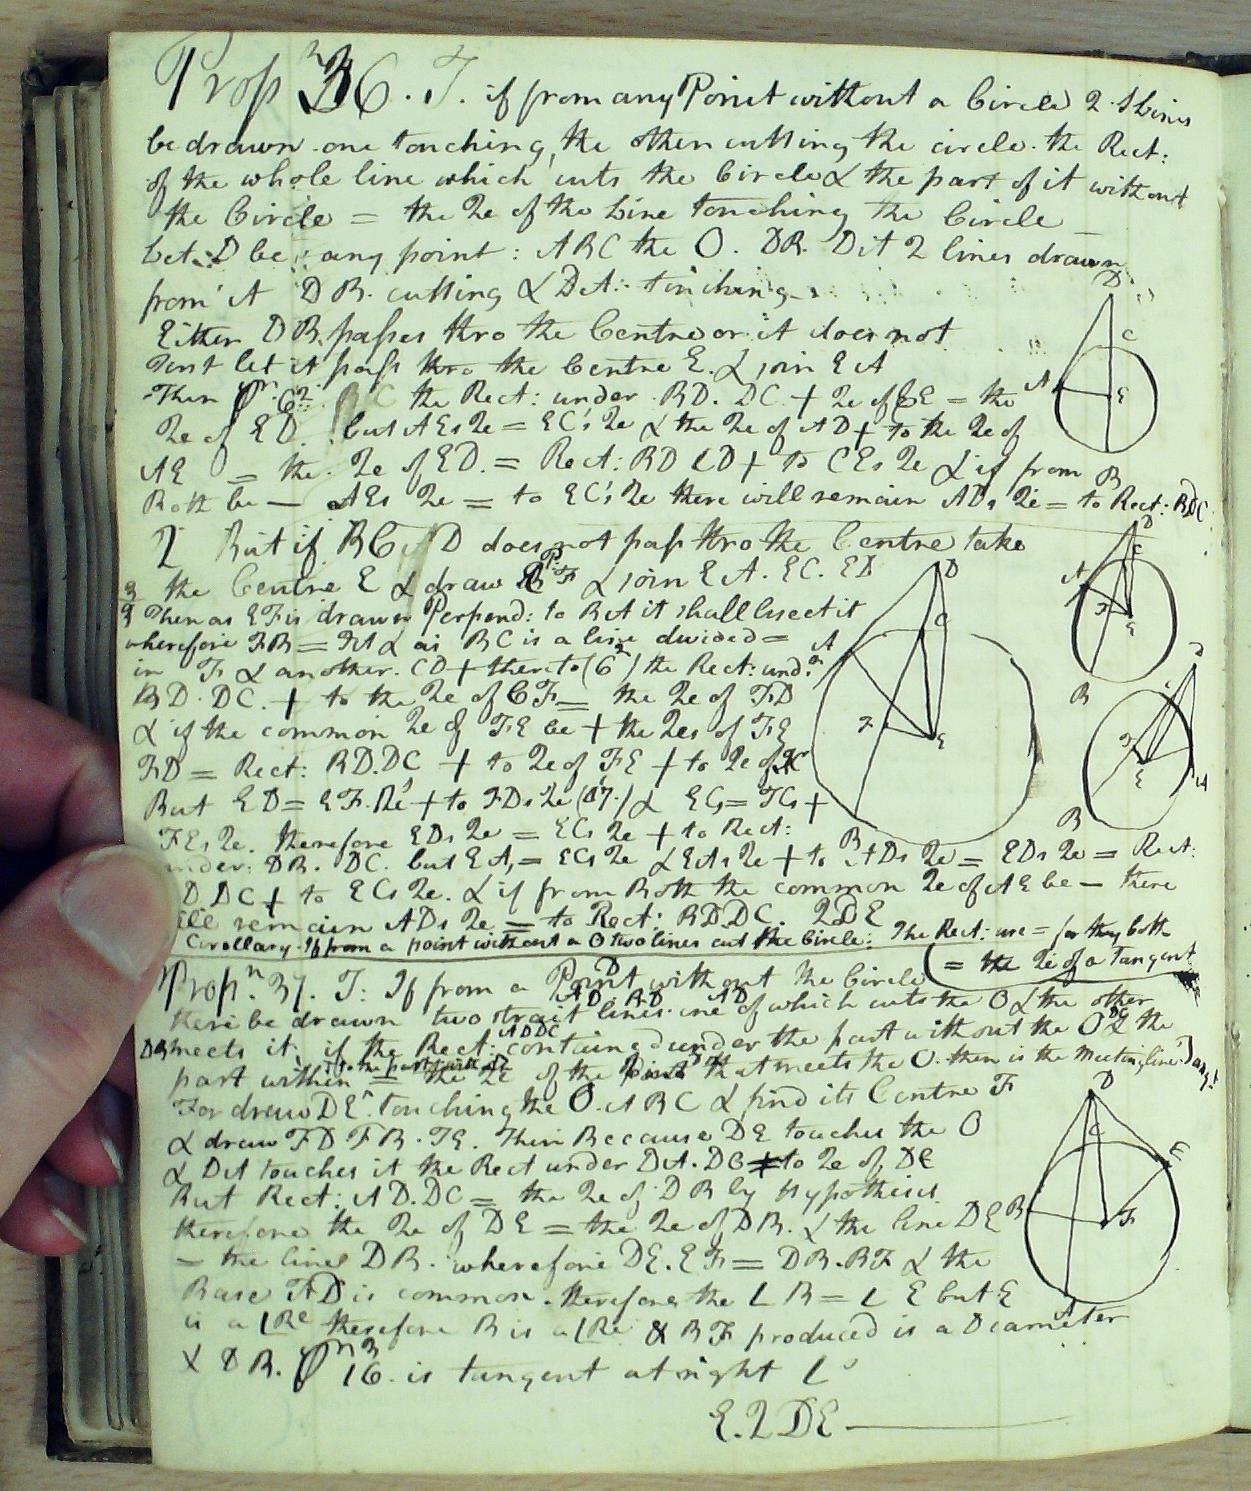 Propn 36. T. if from any Point without a Circle 2 s Lines
be drawn one touching, the other cutting the circle. the Rect:
of the whole line which cuts the Circle & the part of it without
the Circle = the 2e of the Line touching the Circle
Let D be any point: ABC the O. DB. DA 2 lines drawn
from A DB. cutting & DA: touching
Either DB. passes thro the Centre or it does not
First let it pass thro the Centre E. & join EA
Then the Rect: under BD. DC + 2e of CE = the
2e of ED. but AEs 2e = EC's 2e & the 2e of AD + to the 2e of
AE = the 2e of ED. = Rect: BD CD + to CEs 2e & if from
Both be — AEs 2e = to EC's 2e there will remain ADs 2e = to Rect: BDC
2 But if BC AD does not pass thro the Centre take
the Centre E & draw EF & join EA. EC. ED
Then as EF is drawn Perpend: to BA it shall bisect it
wherefore FB = FA & as BC is a line divided =
in F & another. CD + thereto (6) the Rect: und:
BD. DC. + to the 2e of CF = the 2e of FD
& if the common 2e of FE be + the 2es of FE
FD = Rect: BD.DC + to 2e of FE + to 2e of FC
But ED = EF. 2e + to FDs 2e (47.) &
FEs 2e. therefore EDs 2e = ECs 2e + to Rect:
under: DB. DC. but EA, = ECs 2e & EAs 2e + to ADs 2e = EDs 2e = Rect:
D DC + to ECs 2e. & if from Both the common 2e of AE be — there
will remain ADs 2e = to Rect: BD.DC. QDE
Corollary. If from a point without a O two lines cut the Circle: The Rect: are = for they both
= the 2e of a Tangent
Propn. 37. T: If from a Point without the Circle
there be drawn two strait lines. one of which cuts the O & the other
meets it, if the Rect: contained under the part without the O & the
part within = the 2e of the that meets the O. then is the Meeting line
For draw DE. touching the O. ABC & find its Centre F
& draw FD FB. FE. Then Because DE touches the O
& DA touches it the Rect under DA. DC = to 2e of DE
But Rect: AD.DC = the 2e of DB by Hypothesis
therefore the 2e of DE = the 2e of DB. & the line DE
= the line DB. wherefore DE. EF = DB. BF & the
Base FD is common. therefore the L B = L E but E
is a L Re therefore B is a L Re & BF produced is a Diameter
& DB. Pn 16. is tangent at right L
E. QDE